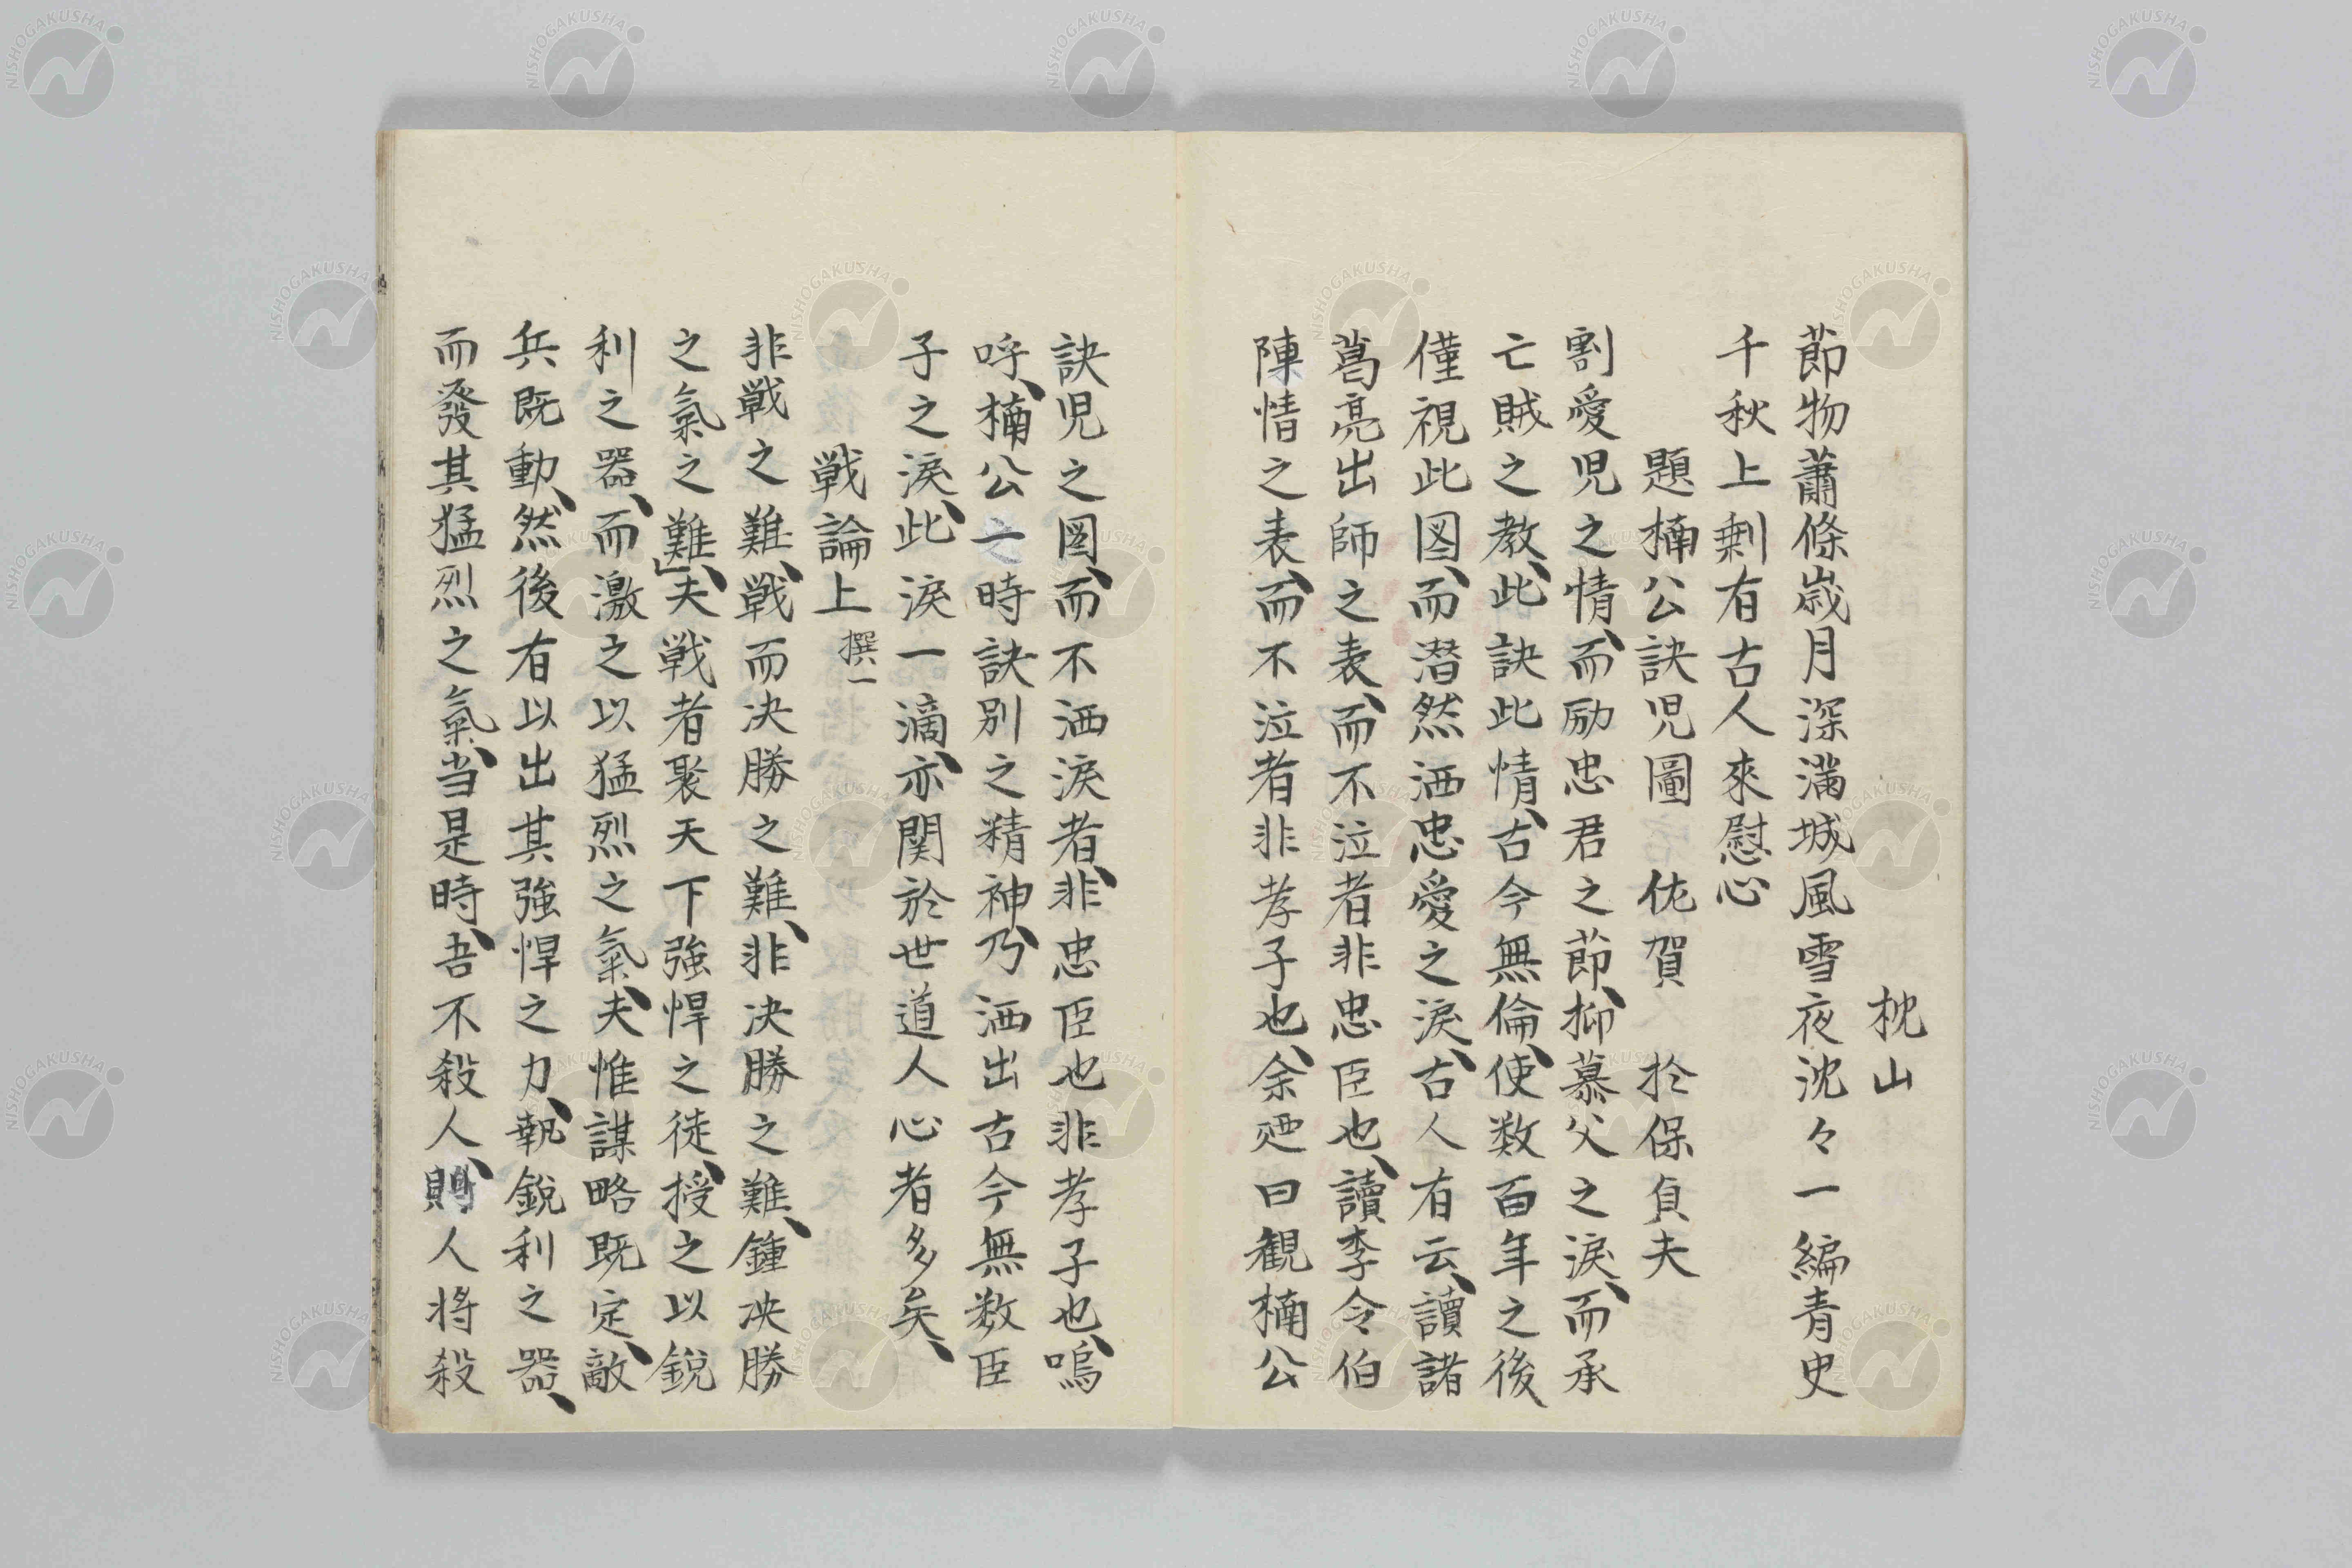 枕山
節物蕭條歳月深満城風雪夜沈々一編青史
千秋上剰有古人來慰心
題楠公訣児圖　佐賀　於保貞夫
割愛児之情、而励忠君之節、抑慕父之涙、而承
亡賊之教、此訣此情、古今無倫、使数百年之後
僅視此図、而潜然洒忠愛之涙、古人有云、讀諸
葛亮出師之表、而不泣者非忠臣也、讀李令伯
陳情之表、而不泣者非孝子也、余亦曰観楠公
訣児之図、而不洒涙者、非忠臣也非孝子也、嗚
呼、楠公之時訣別之精神、乃洒出古今無数臣
子之涙、此涙一滴、亦関於世道人心者多矣、
戦論上 撰一
非戦之難、戦而决勝之難、非决勝之難、鍾决勝
之氣之難」、夫戦者聚天下強悍之徒、授之以鋭
利之器、而激之以猛烈之氣、夫惟謀略既定、敵
兵既動、然後有以出其強悍之力、執鋭利之器、
而發其猛烈之氣、当是時、吾不殺人、則人将殺
NISHOGAKUSHA